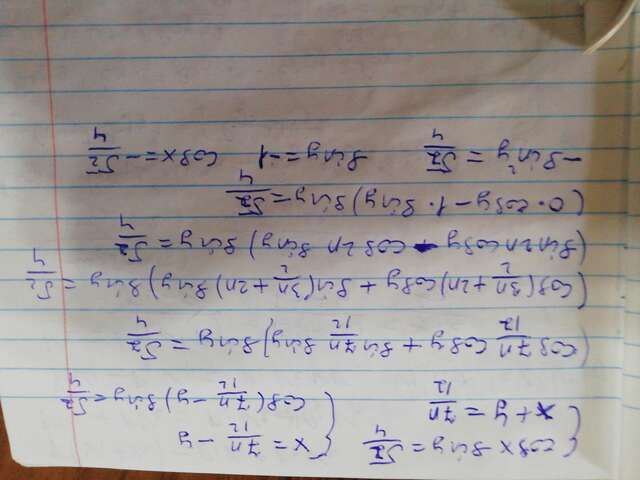 { cosx siny = √2/4 { x = 7π/12 - y
{ x + y = 7π/12 { cos(7π/12 - y) siny = √2/4
(cos 7π/12 cosy + sin 7π/12 siny) siny = √2/4
(cos(3π/2 + 2π) cosy + sin(3π/2 + 2π) siny) siny = √2/4
(sin2π cosy + cos2π siny) siny = √2/4
(0·cosy - 1·siny) siny = √2/4
-sin²y = √2/4 siny = -1 cosx = -√2/4